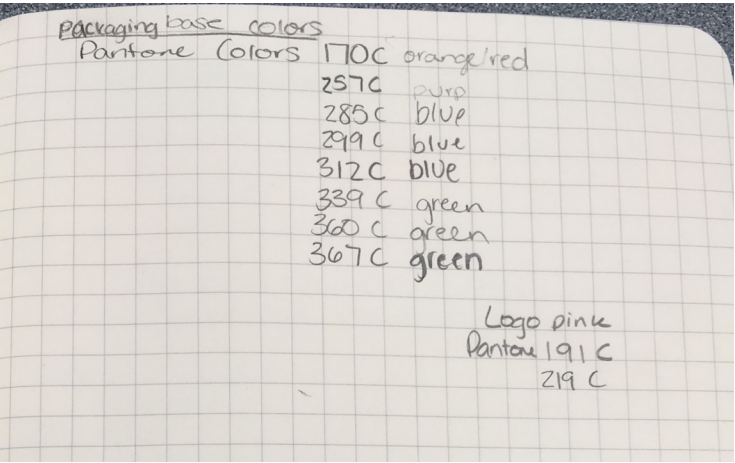 Packaging base colors
Pantone Colors 170C orange/red
257C purp
285C blue
299C blue
312C blue
339C green
360C green
367C green
Logo pink
Pantone 191C
219C